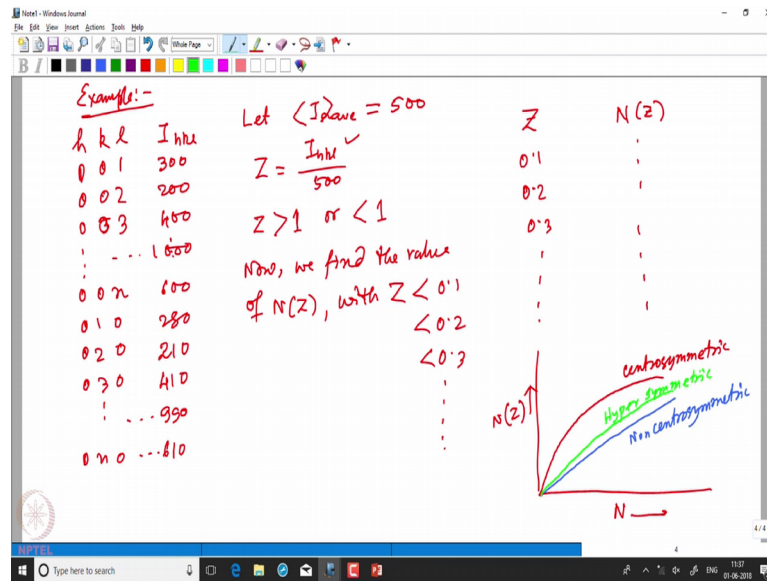 Note1 - Windows Journal
File Edit View Insert Actions Tools Help
Whole Page
B I
Example:-
h k l I hkl
0 0 1 300
0 0 2 200
0 0 3 400
⋮ --- 1000
0 0 n 600
0 1 0 280
0 2 0 210
0 3 0 410
⋮ ... 990
0 n 0 --- 610
Let <I>ave = 500
Z = Ihkl / 500
Z > 1 or < 1
Now, we find the value
of N(Z), with Z < 0.1
< 0.2
< 0.3
Z N(Z)
0.1
0.2
0.3
centrosymmetric
Hyper symmetric
Non centrosymmetric
N(Z)
N →
4/4
NPTEL
4
Type here to search
ENG
11:37
01-06-2018